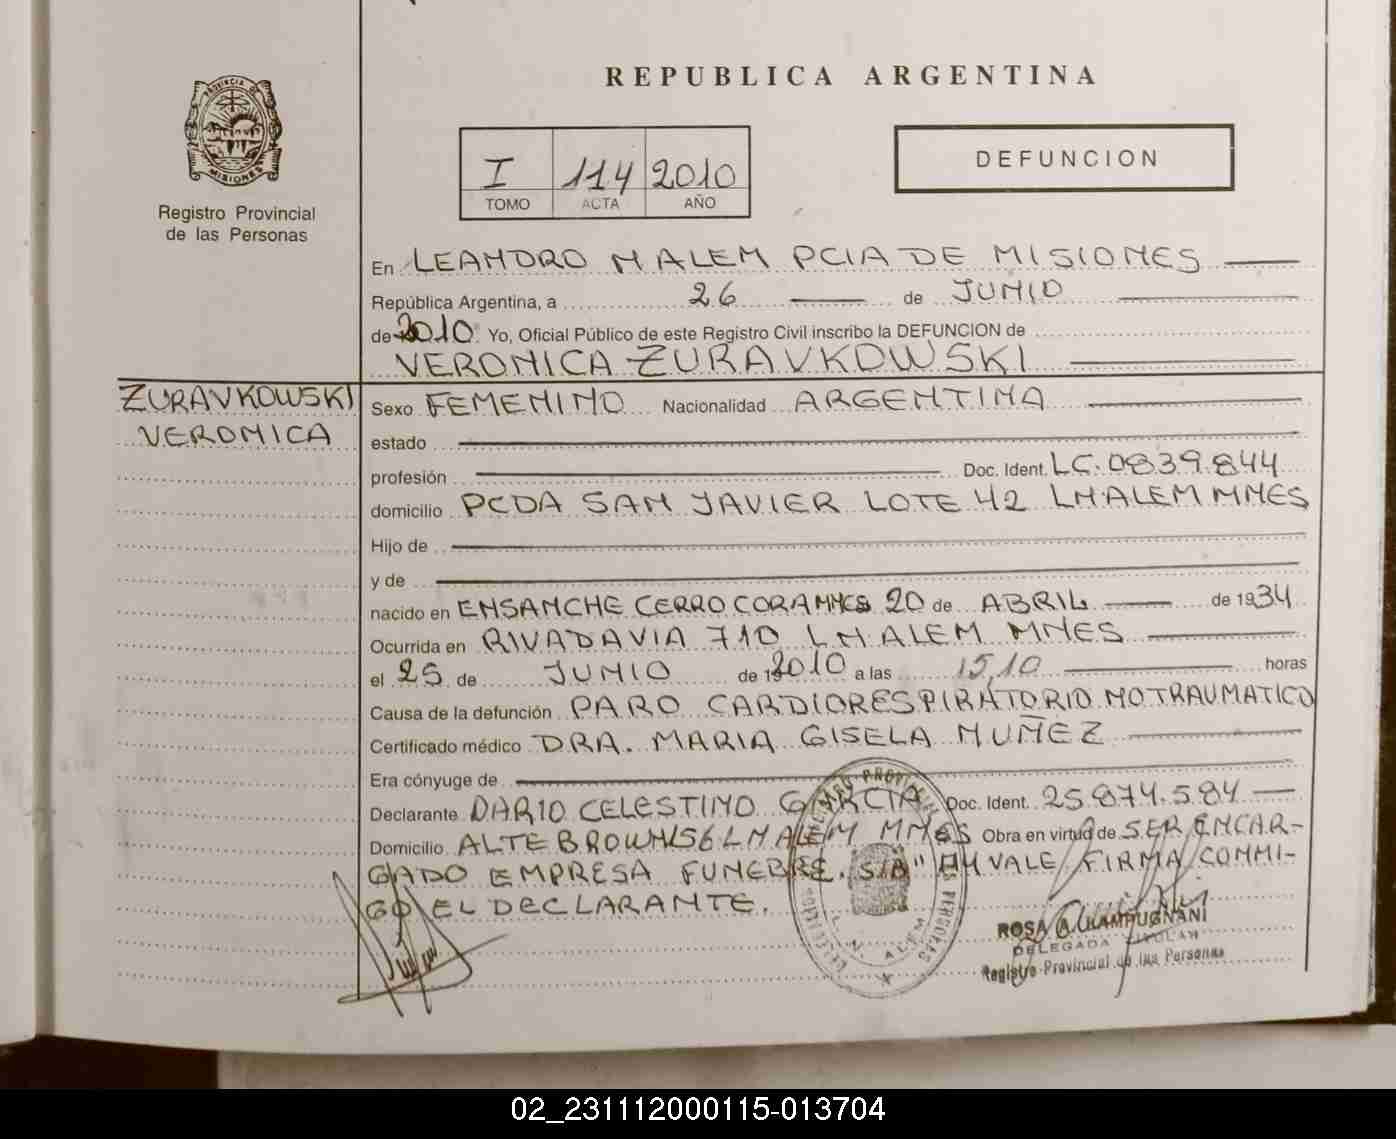 REPUBLICA ARGENTINA
PROVINCIA DE
MISIONES
Registro Provincial
de las Personas
I 114 2010
TOMO ACTA AÑO
DEFUNCION
En LEANDRO N ALEM PCIA DE MISIONES
República Argentina, a 26 de JUNIO
de 2010 Yo, Oficial Público de este Registro Civil inscribo la DEFUNCION de
VERONICA ZURAVKOWSKI
ZURAVKOWSKI
VERONICA
Sexo FEMENINO Nacionalidad ARGENTINA
estado
profesión Doc. Ident. LC. 0839.844
domicilio PCDA SAN JAVIER LOTE 42 LNALEM MNES
Hijo de
y de
nacido en ENSANCHE CERRO CORA MNES 20 de ABRIL de 1934
Ocurrida en RIVADAVIA 710 L N ALEM MNES
el 25 de JUNIO de 2010 a las 15,10 horas
Causa de la defunción PARO CARDIORESPIRATORIO NO TRAUMATICO
Certificado médico DRA. MARIA GISELA MUÑEZ
Era cónyuge de
Declarante DARIO CELESTINO GARCIA Doc. Ident. 25.874.584
Domicilio ALTE BROWN 156 L N ALEM MNES Obra en virtud de SER ENCAR-
GADO EMPRESA FUNEBRE. S/A" VALE FIRMA CONMI-
GO EL DECLARANTE.
L. N. ALEM
ROSA A. KAMPUGNANI
DELEGADA TITULAR
Registro Provincial de las Personas
02_231112000115-013704